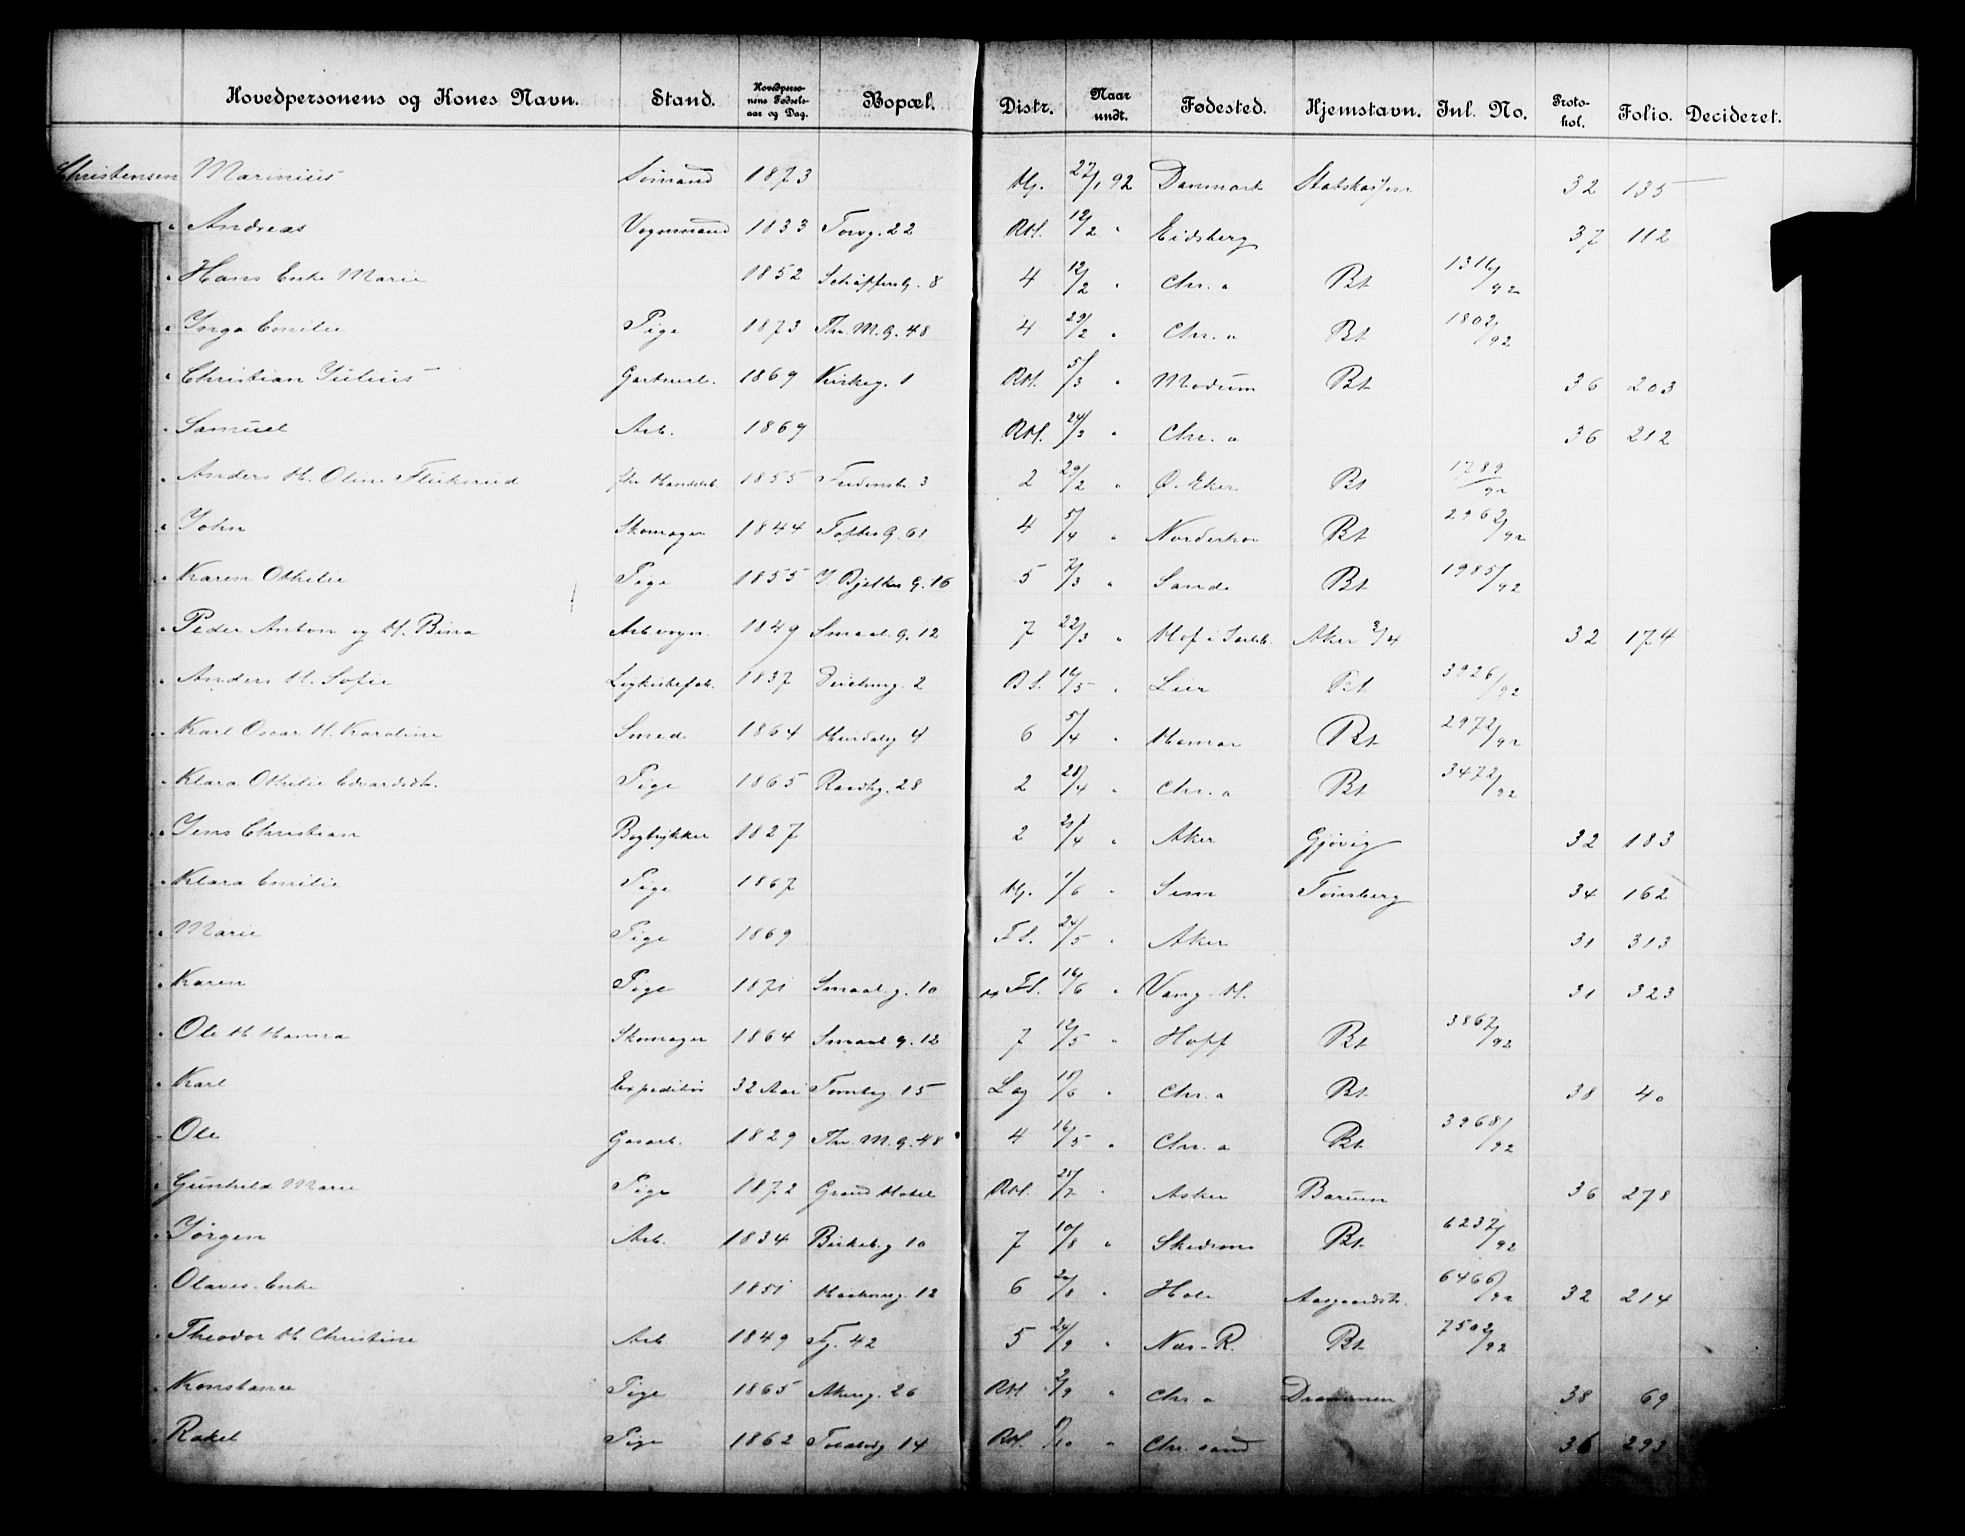 Hovedpersonens og Kones Navn. Stand. Hovedperso-nens Fødsels-aar og Dag. Bopæl. Distr. Naar undt. Fødested. Hjemstavn. Inl. No. Proto-kol. Folio. Decideret.
Christensen Marinius Sømand 1873 Hj. 27/1 92 Danmark Statskassen 32 135
" Andreas Vognmand 1833 Torvg. 22 RH. 12/2 " Eidsberg 37 112
" Hans Enke Marie 1852 8 4 12/2 " Chr.a Bt 1316/92
" Inga Emilie Pige 1873 Thv. M. G. 48 4 29/2 " Chr.a Bt 1802/92
" Christian Julius Gartnerb. 1869 Kirkeg. 1 RH. 5/3 " Modum Bt 36 203
" Samuel Arb. 1869 RH. 24/3 " Chr.a 36 212
" Anders H. Oline Fliksrud fhv Handelsb. 1855 Fredensb. 3 2 29/2 " Ø. Eker Bt 1789/92
" John Skomager 1844 Toftes G. 61 4 5/4 " Norderhov Bt 2962/92
" Karen Othilie Pige 1855 J. Bjelkes G. 16 5 7/3 " Sande Bt 1985/92
" Peder Anton og H. Bina Arb vogn. 1849 Smaal. G. 12 7 22/3 " Hof i Jarlsb. Aker 3/4 32 174
" Anders H. Sofie Ligkistefab. 1837 2 BS. 14/5 " Lier Bt 3926/92
" Karl Oscar H. Karoline Smed 1864 4 6 5/4 " Hamar Bt 2972/92
" Klara Othilie Edvardsdtr. Pige 1865 Raadhg. 28 2 28/4 " Chr.a Bt 3472/92
" Jens Christian Bogtrykker 1827 2 21/4 " Aker Gjøvig 32 183
" Klara Emilie Pige 1867 Hj. 1/6 " Sem Tønsberg 34 162
" Marie Pige 1869 FS. 24/5 " Aker 31 313
" Karen Pige 1871 Smaal. g. 10 FS. 16/6 " Vang H. 31 323
" Ole H. Hanna Skomager 1864 Smaal g. 12 7 12/5 " Hoff Bt 3867/92
" Karl Expeditør 32 Aar Tomteg 15 Læg 18/6 " Chr.a Bt 38 40
" Ole Gasarb. 1829 Thv. M. G. 48 4 16/5 " Chr.a Bt 3968/92
" Gunhild Marie Pige 1872 Grand Hotel RH. 25/7 " Asker Bærum 36 278
" Jørgen Arb. 1834 Birkeb. g 10 7 10/8 " Skedsmo Bt 6237/92
" Olaves Enke 1851 12 6 20/8 " Hole Aasgaardstr. 6466/92 32 214
" Theodor H Christine Arb 1849 Tg. 42 5 24/9 " Næs - R. Bt 7502/92
" Konstance Pige 1865 Akersg. 26 RH 2/9 " Chr.a Drammen 38 69
" Rakel Pige 1862 14 RH. 8/10 " Chr.sand 36 293